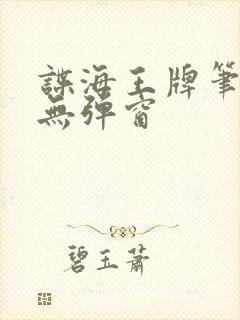 諜海王牌筆
無彈窗
碧玉蕭